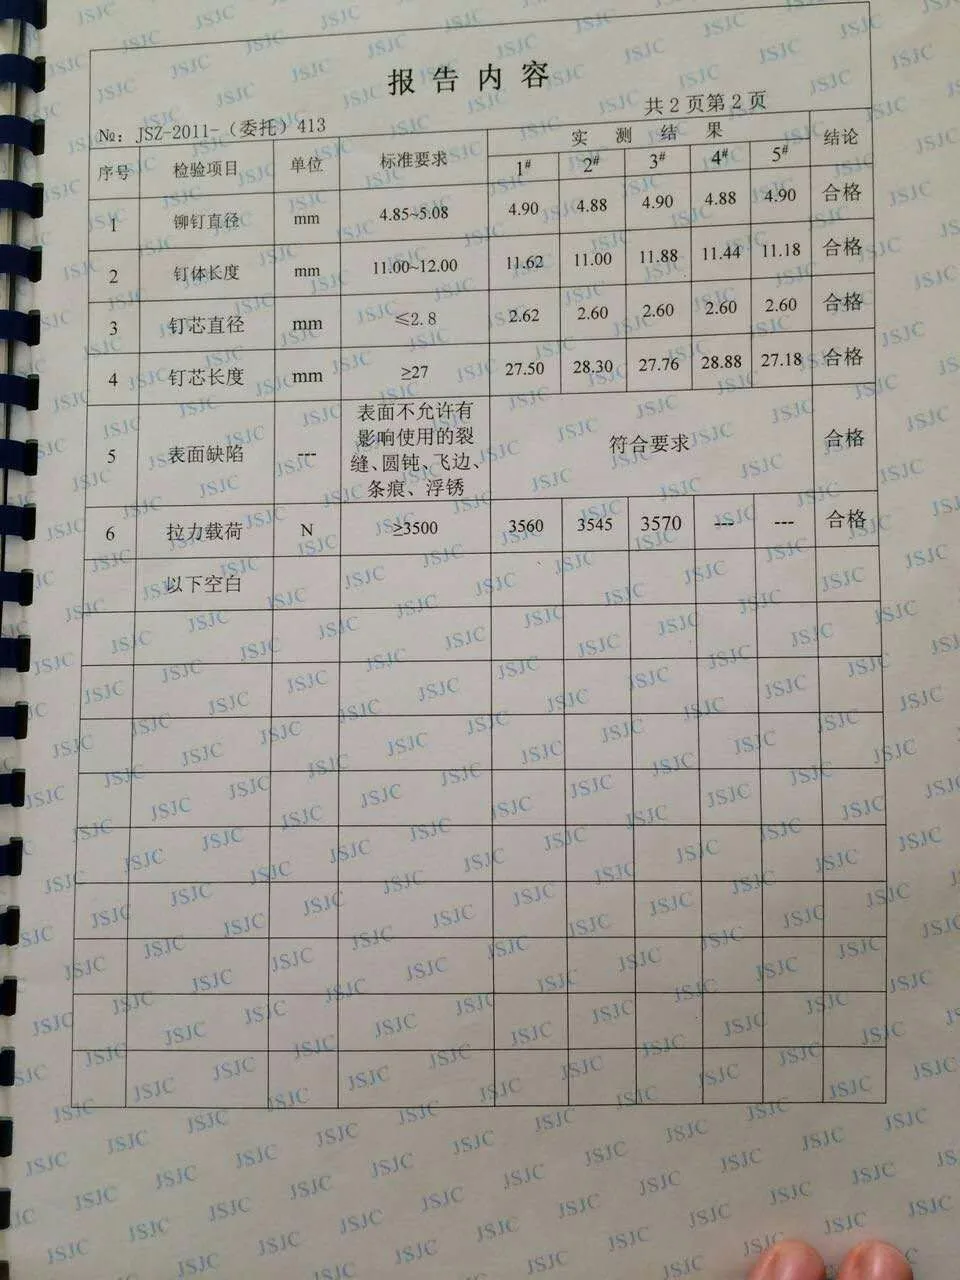 报告内容
№：JSZ-2011-（委托）413 共2页第2页
序号 检验项目 单位 标准要求 实测结果 结论
1# 2# 3# 4# 5#
1 铆钉直径 mm 4.85~5.08 4.90 4.88 4.90 4.88 4.90 合格
2 钉体长度 mm 11.00~12.00 11.62 11.00 11.88 11.44 11.18 合格
3 钉芯直径 mm ≤2.8 2.62 2.60 2.60 2.60 2.60 合格
4 钉芯长度 mm ≥27 27.50 28.30 27.76 28.88 27.18 合格
5 表面缺陷 --- 表面不允许有
影响使用的裂
缝、圆钝、飞边、
条痕、浮锈 符合要求 合格
6 拉力载荷 N ≥3500 3560 3545 3570 --- --- 合格
以下空白
JSJC